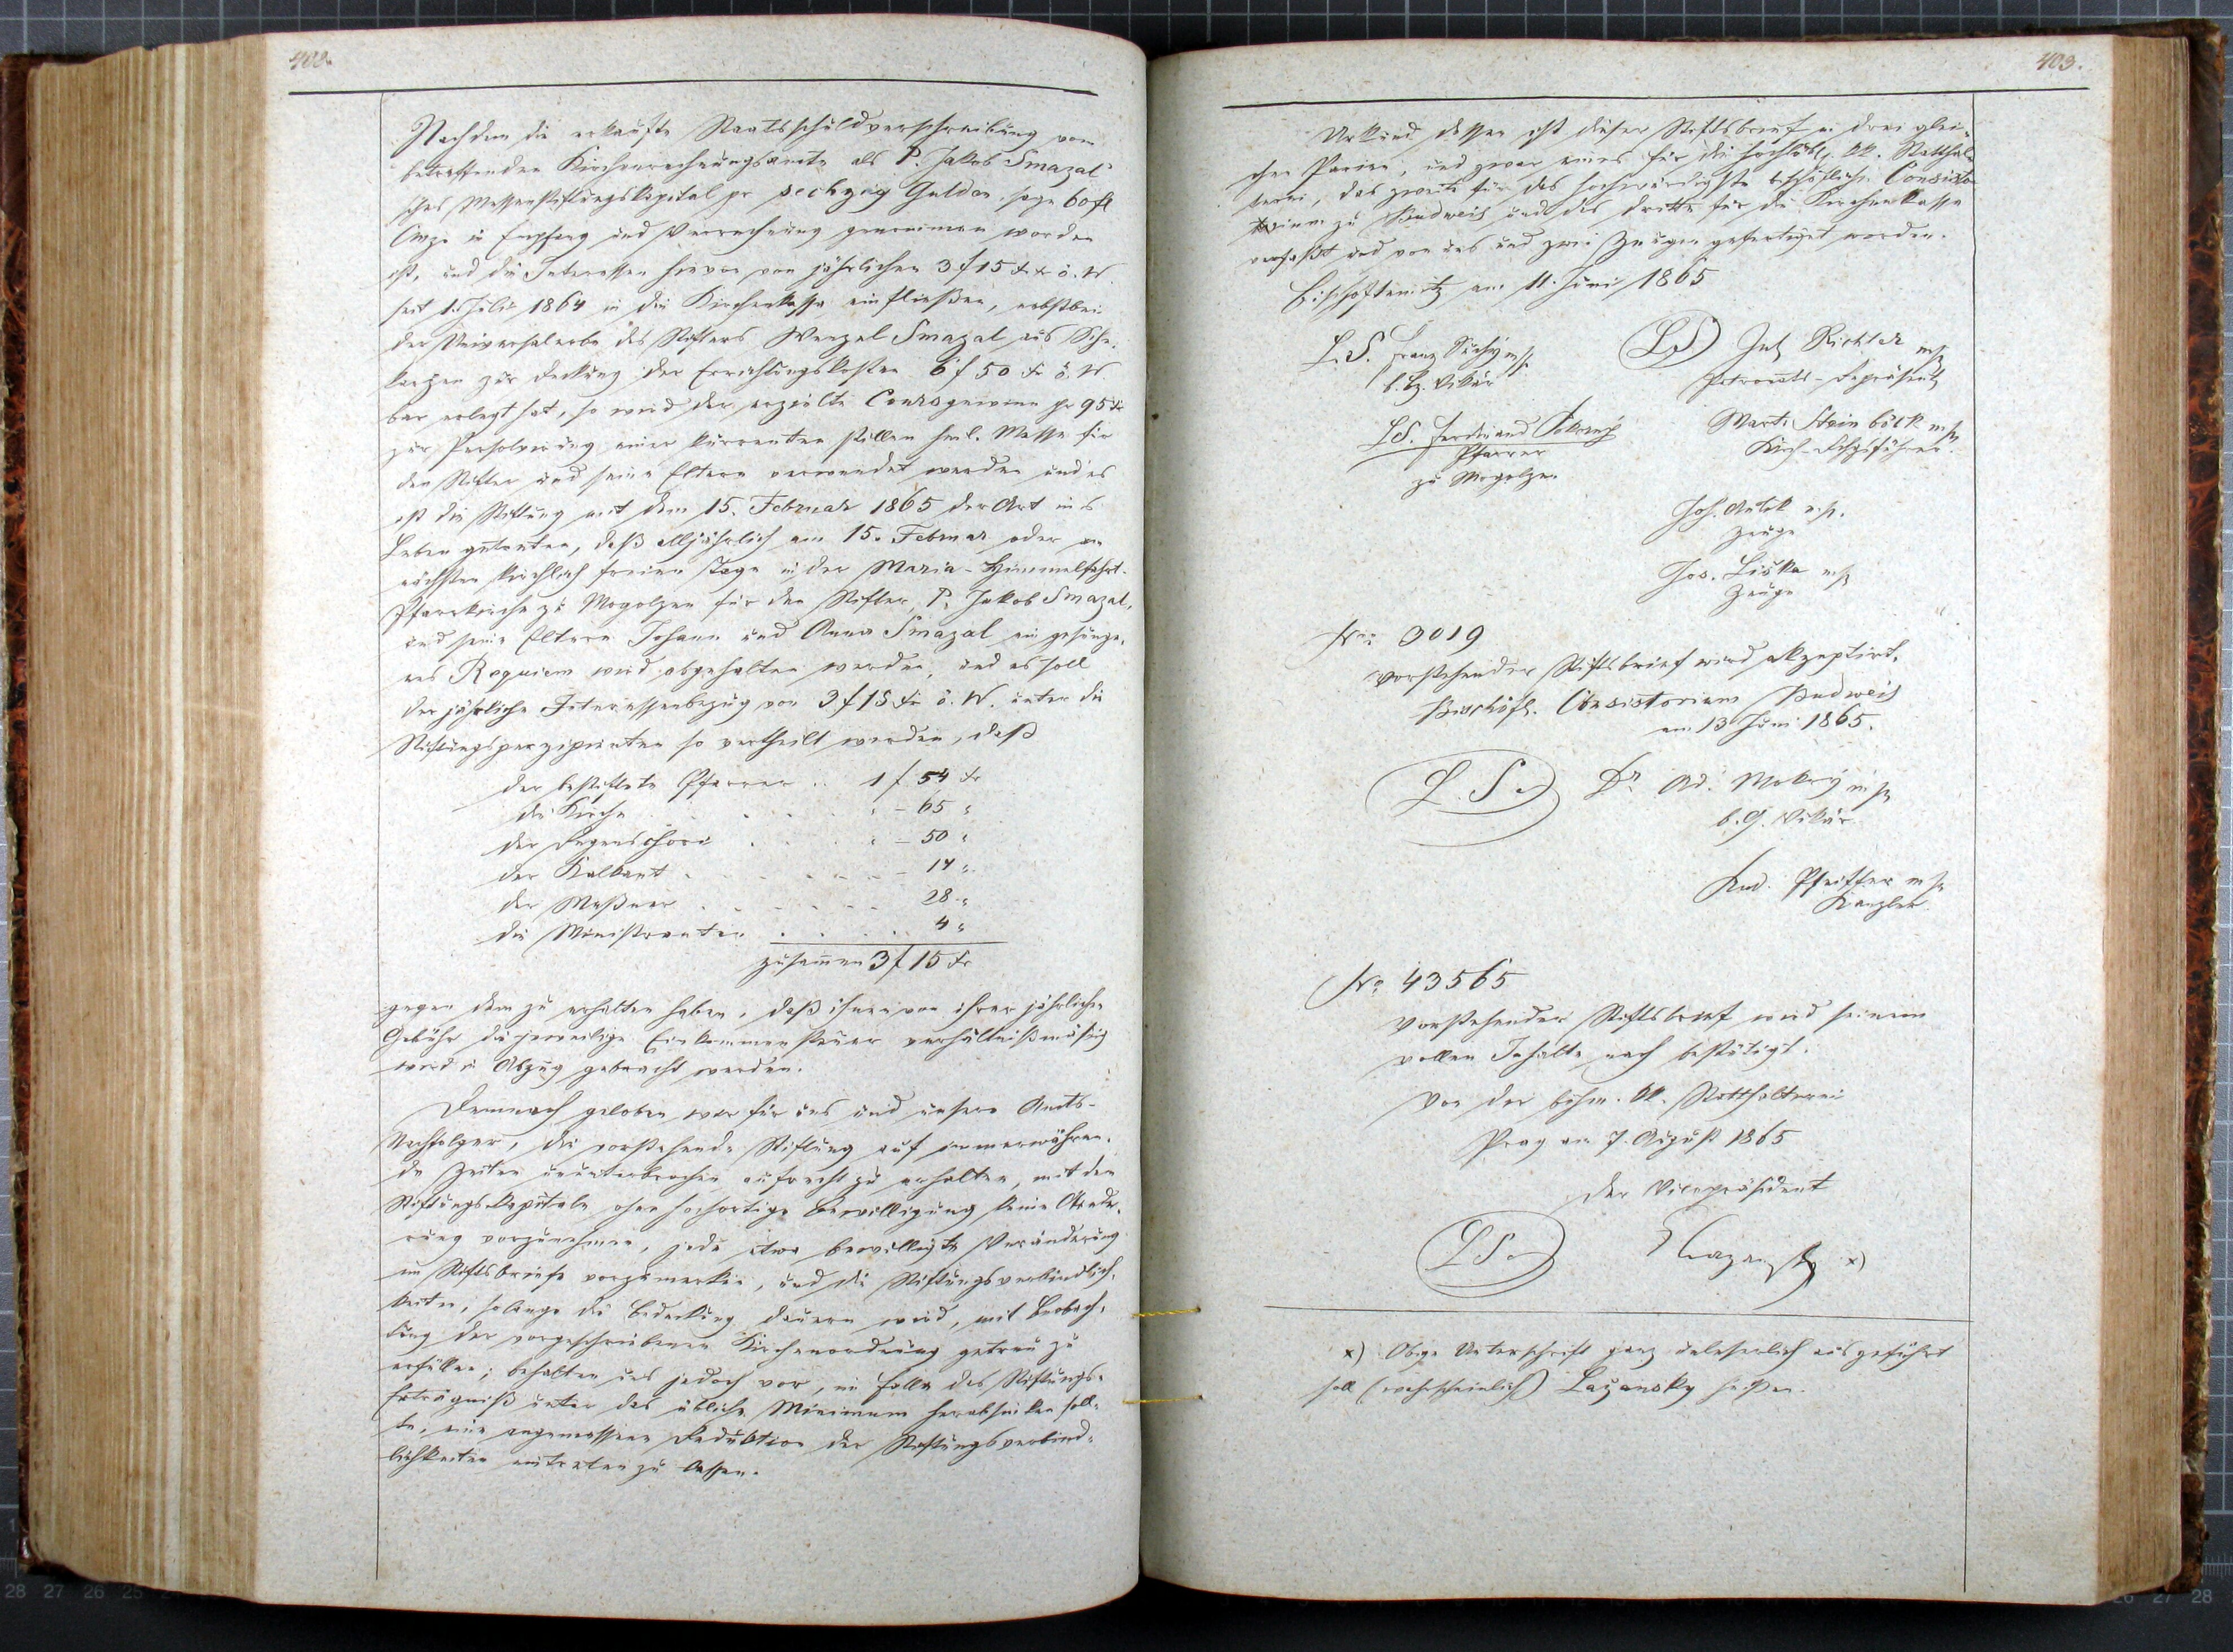 402.
Nachdem die erkaufte Staatsschuldverschreibung vom
betreffenden Kirchenrechnungsamte als P. Jakob Smazal'
sches Messenstiftungskapital pr sechzig Gulden sage 60 fl
in Empfang und Verrechnung genommen worden
ist, und die Interessen hievon von jährlichen 3 f 15 xr ö. W.
seit 1. Juli 1864 in die Kirchenkasse einfließen, nebstbei
der Universalerbe des Stifters Wenzel Smazal aus
zur Deckung der Errichtungskosten 6 f 50 xr ö. W.
bar erlegt hat, so wird der erzielte Coursgewinn pr 95 xr
zur Persolvirung einer kurrenten stillen heil. Messe für
den Stifter und seine Eltern verwendet werden und es
ist die Stiftung mit dem 15. Februar 1865 der Art ins
Leben getreten, daß alljährlich am 15. Februar oder am
nächsten kirchlich freien Tage in der Maria-Himmelfahrt-
Pfarrkirche zu Mogolzen für den Stifter, P. Jakob Smazal,
und seine Eltern Johann und Anna Smazal ein gesunge-
nes Requiem wird abgehalten werden, und es soll
der jährliche Interessenbezug von 3 f 15 xr ö. W. unter die
Stiftungsperzipienten so vertheilt werden, daß
der bestiftete Pfarrer .. 1 f 54 xr
die Kirche . . . . " – 65 "
der Regenschori . . . " – 50 "
der Kalkant . . . . . – 14 "
der Meßner . . . . . 28 "
die Ministranten . . . . 4 "
zusammen 3 f 15 xr
gegen dem zu erhalten haben, daß ihnen von ihrer jährlichen
Gebühr die jeweilige Einkommensteuer verhältnißmäßig
wird in Abzug gebracht werden.
Demnach geloben wir für uns und unsere Amts-
Nachfolger, die vorstehende Stiftung auf immerwähren-
de Zeiten ununterbrochen aufrecht zu erhalten, mit dem
Stiftungskapitale ohne hochortige Bewilligung keine Aende-
rung vorzunehmen, jede etwa bewilligte Veränderung
im Stiftsbriefe vorzumerken, und die Stiftungsverbindlich-
keiten, solange die Bedeckung dauern wird, mit Beobach-
tung der vorgeschriebenen Kirchenordnung getreu zu
erfüllen; behalten uns jedoch vor, im Falle das Stiftungs-
Erträgniß unter das übliche Minimum herabsinken soll-
te, eine angemessene Reduktion der Stiftungsverbind-
lichkeiten eintreten zu lassen.
403.
Urkund dessen ist dieser Stiftsbrief in drei glei-
chen Parien, und zwar eines für die hochlöbl. kk. Statthal-
terei, das zweite für das hochwürdigste bischöfliche Consisto-
rium zu Budweis und das dritte für die Kirchenkasse
verfaßt und von uns und zwei Zeugen gefertiget worden.
Bischofteinitz am 11. Juni 1865
L.S. Franz Suchy m/p
b. Bz. Vikär
L.S. Jul. Richter m/p
Patronats-Repräsent.
LS. Ferdinand Pokorny
Pfarrer
zu Mogolzen
Mart. Steinböck m/p
Kirch-Rchgsführer.
Joh. Antek m.p.
Zeuge
Jos. Liška m/p
Zeuge
Nro 3019
Vorstehender Stiftsbrief wird akzeptirt.
Bischöfl. Consistorium Budweis
am 13 Juni 1865.
L.S. Dr Ad. Mokry m/p
b. G. Vikär.
And. Pfeiffer m/p
Kanzler.
No 43565
Vorstehender Stiftsbrief wird seinem
vollen Inhalte nach bestätigt.
Von der böhm. kk. Statthalterei
Prag am 7. August 1865
Der Vicepräsident
LS. Lazansky x)
x) Obige Unterschrift ganz unleserlich ausgeführt
soll (wahrscheinlich) Lažansky heißen.